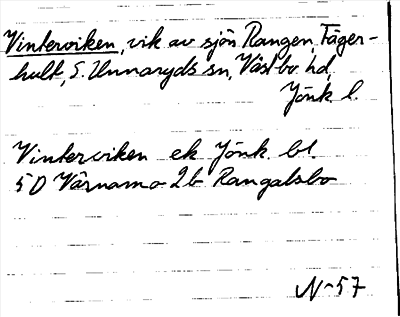 Vinterviken, vik av sjön Rangen, Fäger-
hult, S. Unnaryds sn, Västbo hd,
Jönk l.
Vinterviken ek Jönk. bl.
5D Värnamo 2b Rangalsbo
N-57